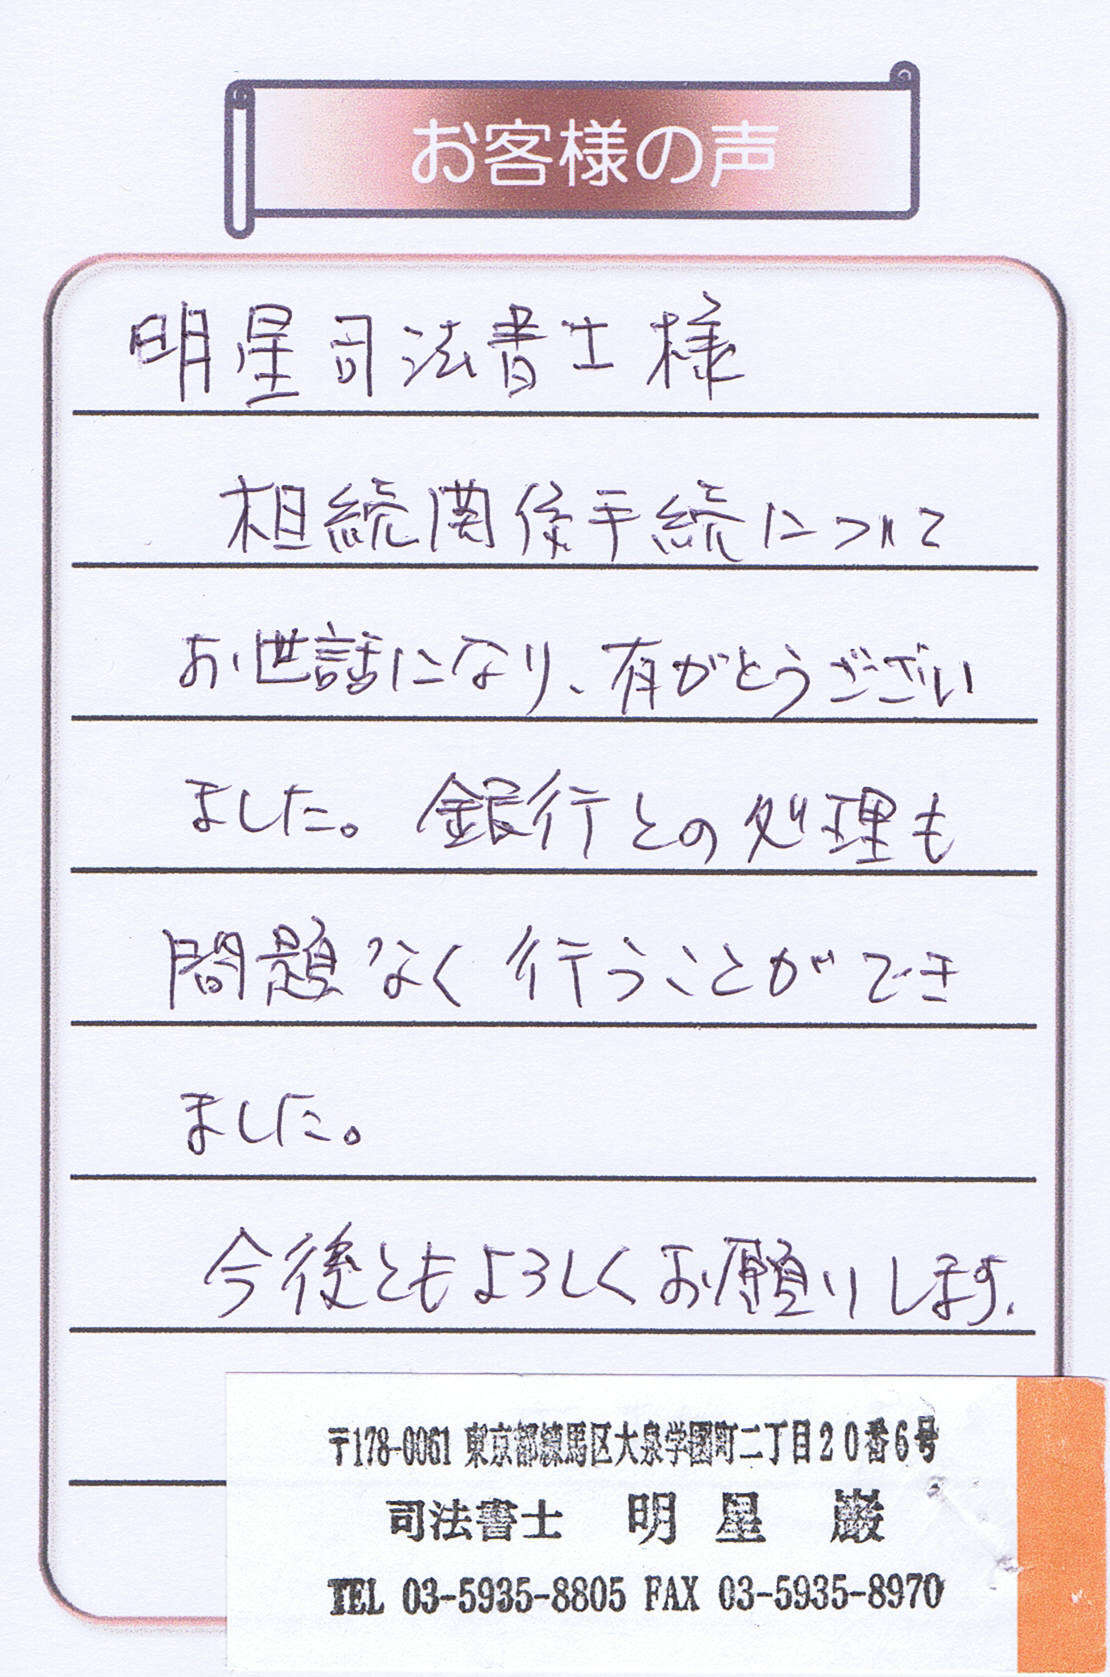 お客様の声
明星司法書士様
相続関係手続について
お世話になり、有がとうござい
ました。銀行との処理も
問題なく行うことができ
ました。
今後ともよろしくお願いします.
〒178-0061 東京都練馬区大泉学園町二丁目20番6号
司法書士 明星 巌
TEL 03-5935-8805 FAX 03-5935-8970